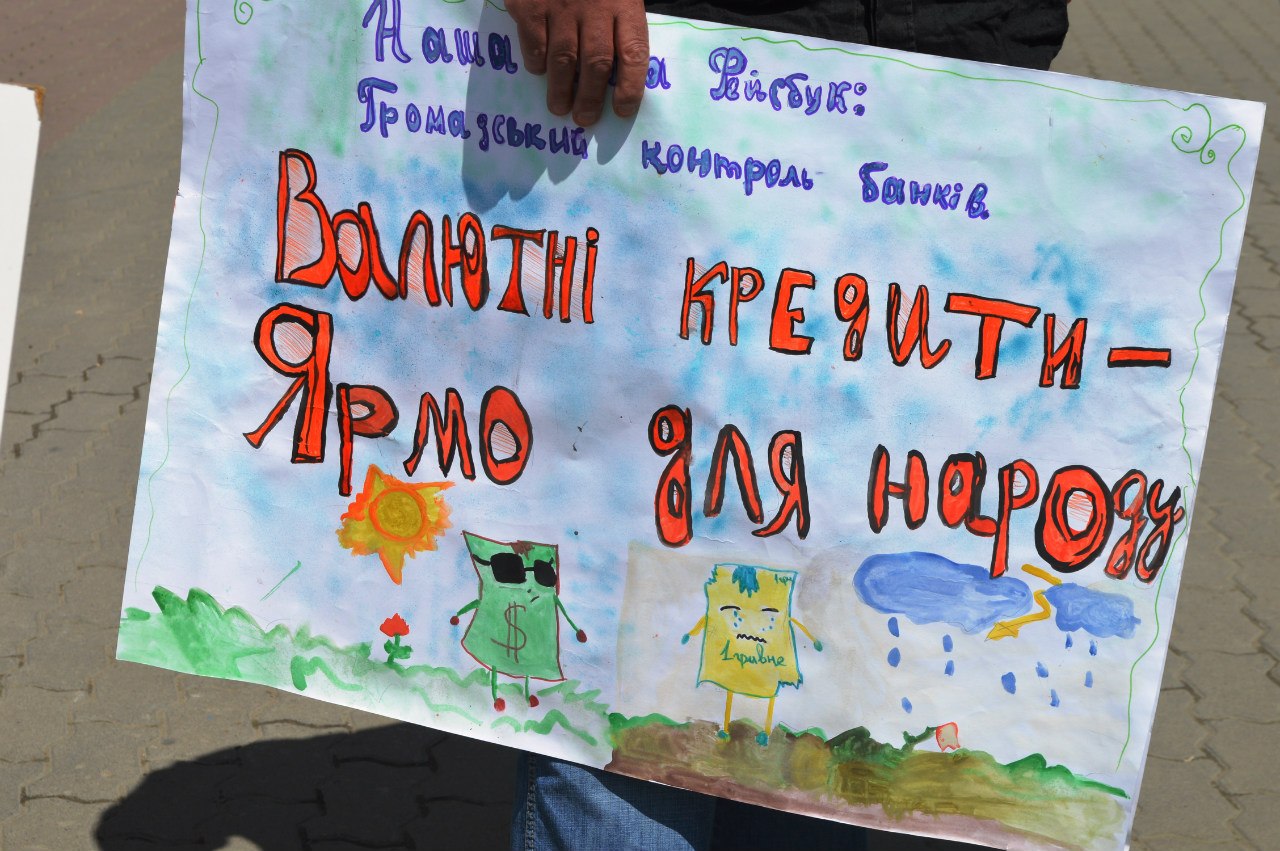 Наша Фейсбук:
Громадський контроль банків.
Валютні кредити –
Ярмо для народу
$
1 гривне